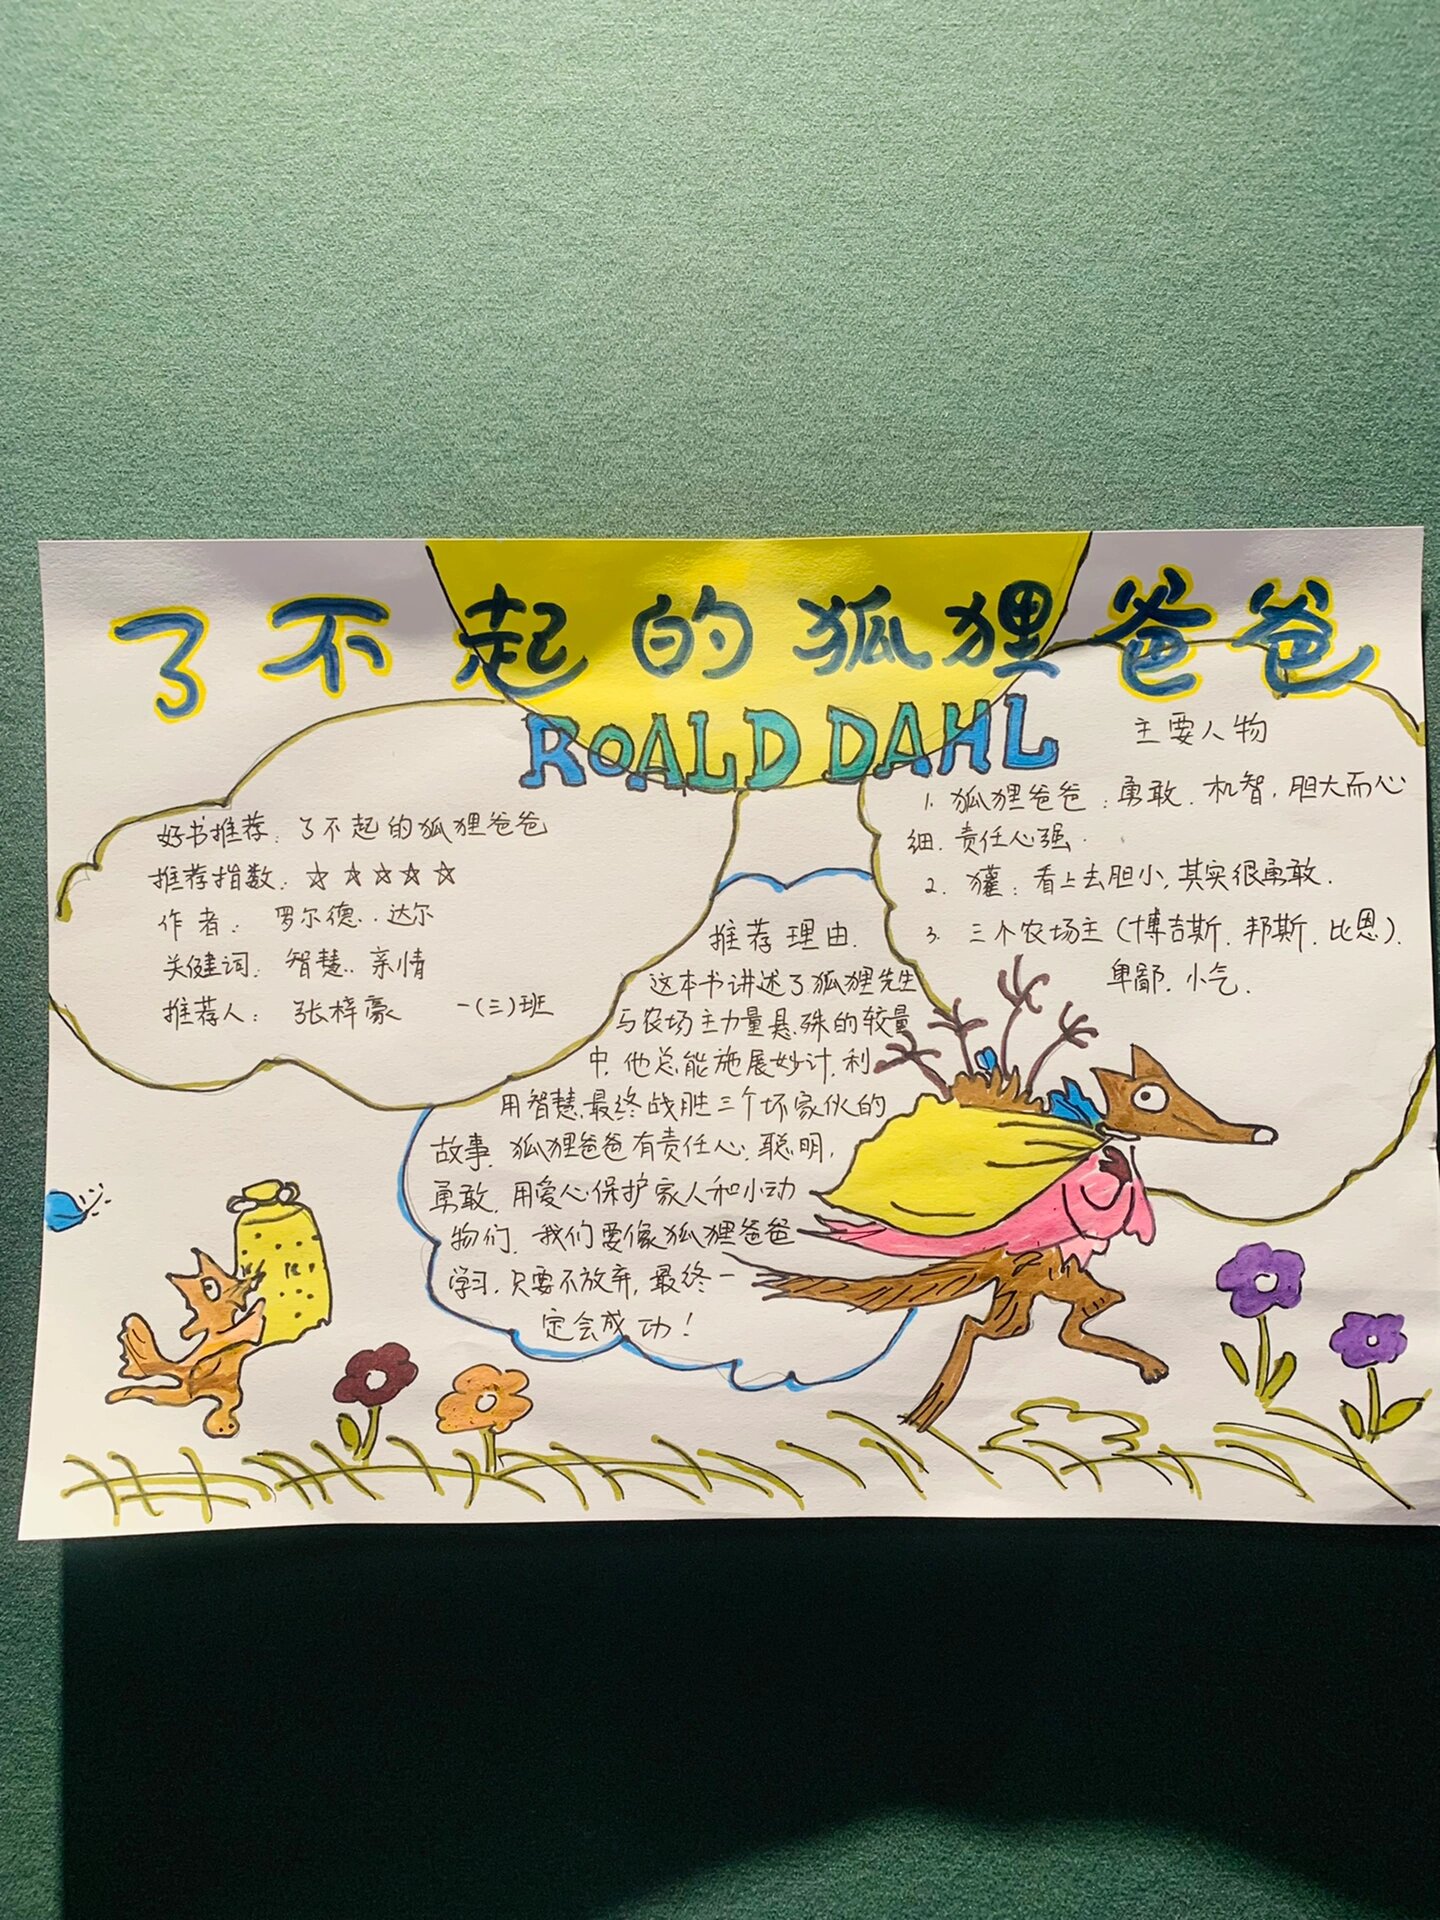 了不起的狐狸爸爸
ROALD DAHL
好书推荐：了不起的狐狸爸爸
推荐指数：☆☆☆☆☆
作者：罗尔德．达尔
关键词：智慧．亲情
推荐人：张梓豪 一(三)班
推荐理由．
这本书讲述了狐狸先生
与农场主力量悬殊的较量
中，他总能施展妙计，利
用智慧，最终战胜三个坏家伙的
故事．狐狸爸爸有责任心，聪明，
勇敢．用爱心保护家人和小动
物们．我们要像狐狸爸爸
学习，只要不放弃，最终一
定会成功！
主要人物
1. 狐狸爸爸：勇敢．机智，胆大而心
细．责任心强．
2. 獾：看上去胆小，其实很勇敢．
3. 三个农场主（博吉斯．邦斯．比恩）．
卑鄙．小气．